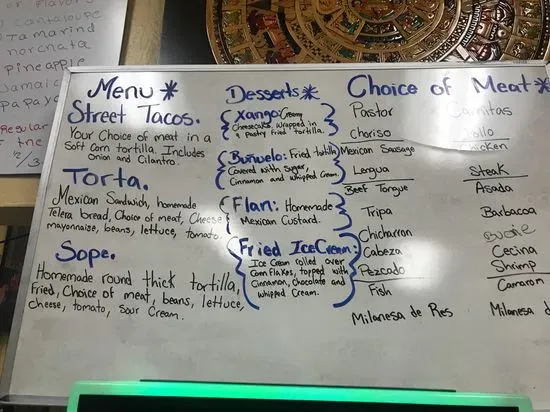 or flavors
cantaloupe
Tamarind
horchata
Pineapple
Jamaica
Papaya
Regular
Menu*
Street Tacos.
Your Choice of meat in a
Soft corn tortilla. Includes
Onion and Cilantro.
Torta.
Mexican Sandwich, homemade
Telera bread, Choice of meat, Cheese
mayonnaise, beans, lettuce, tomato.
Sope.
Homemade round thick tortilla,
Fried, Choice of meat, beans, lettuce,
cheese, tomato, Sour Cream.
Desserts*
Xango: Creamy
Cheesecake wrapped in
a Pastry fried tortilla.
Buñuelo: Fried tortilla
Covered with Sugar,
Cinnamon and whipped Cream
Flan: Homemade
Mexican Custard.
Fried IceCream:
Ice Cream rolled over
Corn Flakes, topped with
Cinnamon, chocolate and
whipped Cream.
Choice of Meat*
Pastor
Choriso
Mexican Sausage
Lengua
Beef Tongue
Tripa
Chicharron
Cabeza
Pezcado
Fish
Milanesa de Res
Carnitas
Pollo
Chicken
Steak
Asada
Barbacoa
Buche
Cecina
Shrimp
Camaron
Milanesa d